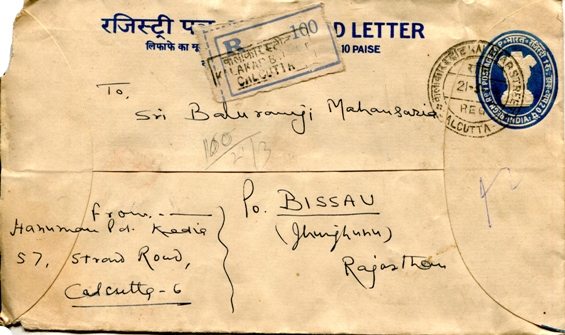 रजिस्ट्री पत्र LETTER
लिफाफे का मू 10 PAISE
R 100
KALAKAR
CALCUTTA
CALCUTTA
INDIA
To,
Sri Baluramji Mahansaria
160
2/3
From,
Hanuman Pd. Kedia
57, Strand Road,
Calcutta-6
Po. BISSAU
(Jhunjhunu)
Rajasthan